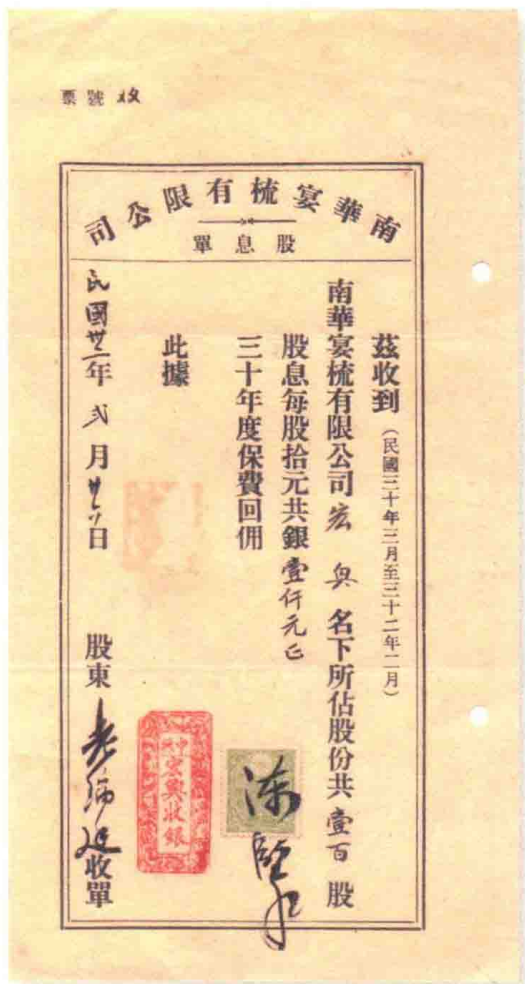 票號
南華宴梳有限公司
股息單
茲收到（民國三十年三月至三十二年二月）
南華宴梳有限公司宏興名下所佔股份共壹百股
股息每股拾元共銀壹仟元正
三十年度保費回佣
此據
民國卅二年弍月廿六日
股東 收單
宏興收銀